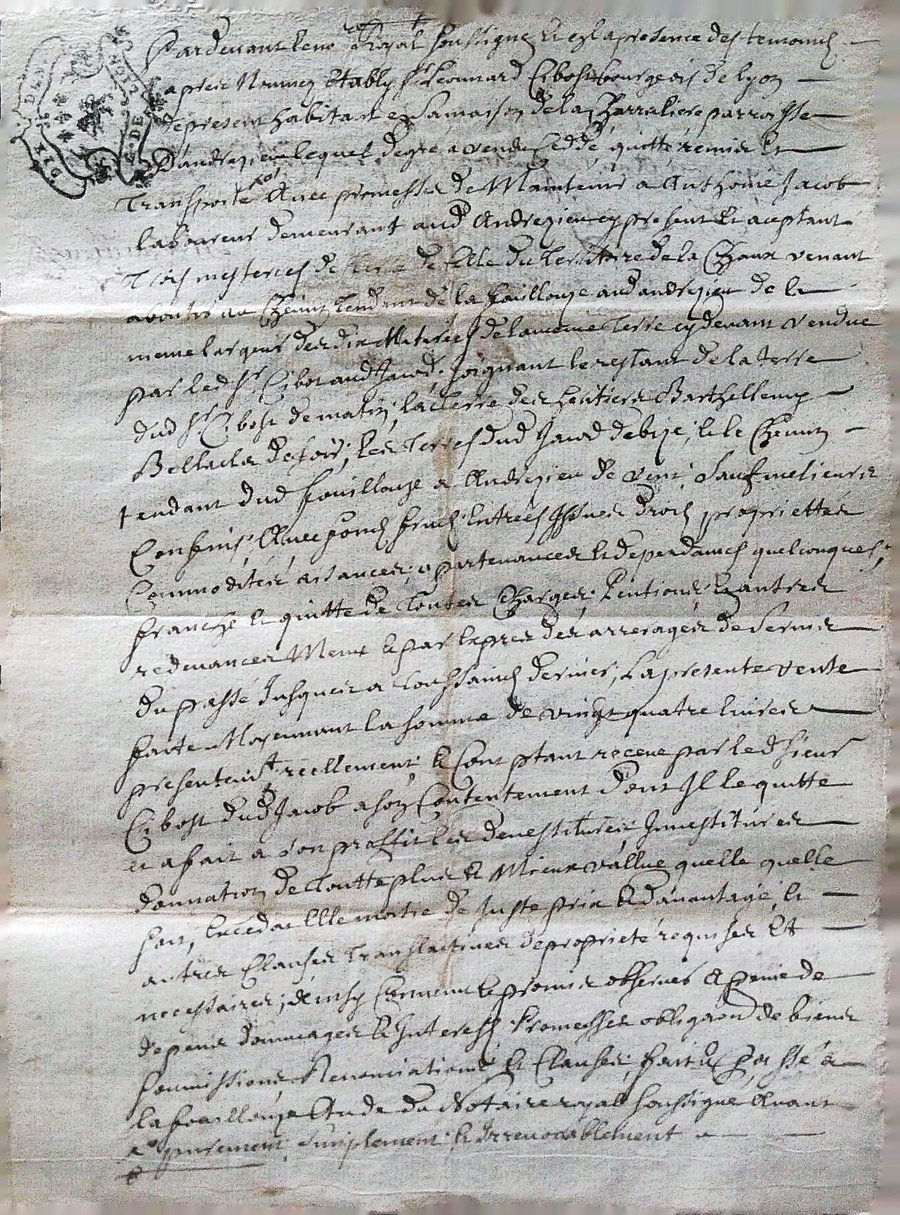 DIX DEN
G. DE LION
Pardevant le no.re Royal soussigné et en la presence des temoins
apres nommez Estably Sr Leonnard Cibost bourgeois de Lyon
de present habitant en sa maison de la Charraliere parroisse
D'andrezieu lequel de gré a vendu cedde quitté remis et
Transporté Avec promesse de Maintenir a Anthoine Jacob
laboureur demeurant aud Andrezieu cy present et aceptant
Trois mesterées de terre de celle du Territoire de la Chaux venant
aboutir au Chemin tendant de la fouillouze aud andrezieu de la
meme largeur des dix Meterées de la meme Terre cy devant vendue
par led Sr Cibost aud Jacob joignant le restant de la terre
dud Sr Cibost de matin, la terre des heritiers Barthellemy
de soir, les terres dud Jacob de bize, et le Chemin
tendant dud fouillouze a Andrezieu de vent, Sauf melieurs
Confins, Avec fonds fruits Entrées Issues Droits proprietter
Commoditées aisances, apartenances et dependances quelconques,
franche et quitte de Toutes Charges, Pentions et autres
redevances Meme et par Exprès des arrerages de Servis
du passé Jusques a Toussaints dernier, La presente vente
faite Moyennant la somme de vingt quatre livres
presentemt reellement et Comptant receue par led Sieur
Cibost dud Jacob a son Contentement Dont Il le quitte
et a fait a son proffit les devestitures Investitures
donnation de Toutte plus et Mieux vallue quelle quelle
soit, Exceda Elle moitié de Juste prix et davantage, et
autres Clauses Translatives de proprieté requises Et
necessaires; Ainsy Convenu et promis observer A peine de
depens dommages et Interests Promesses obligaon de biens
soumissions Renonciations et Clauses, fait et passé a
la fouillouze Etude du Notaire royal soussigné Avant
purement, simplement et Irrevocablement